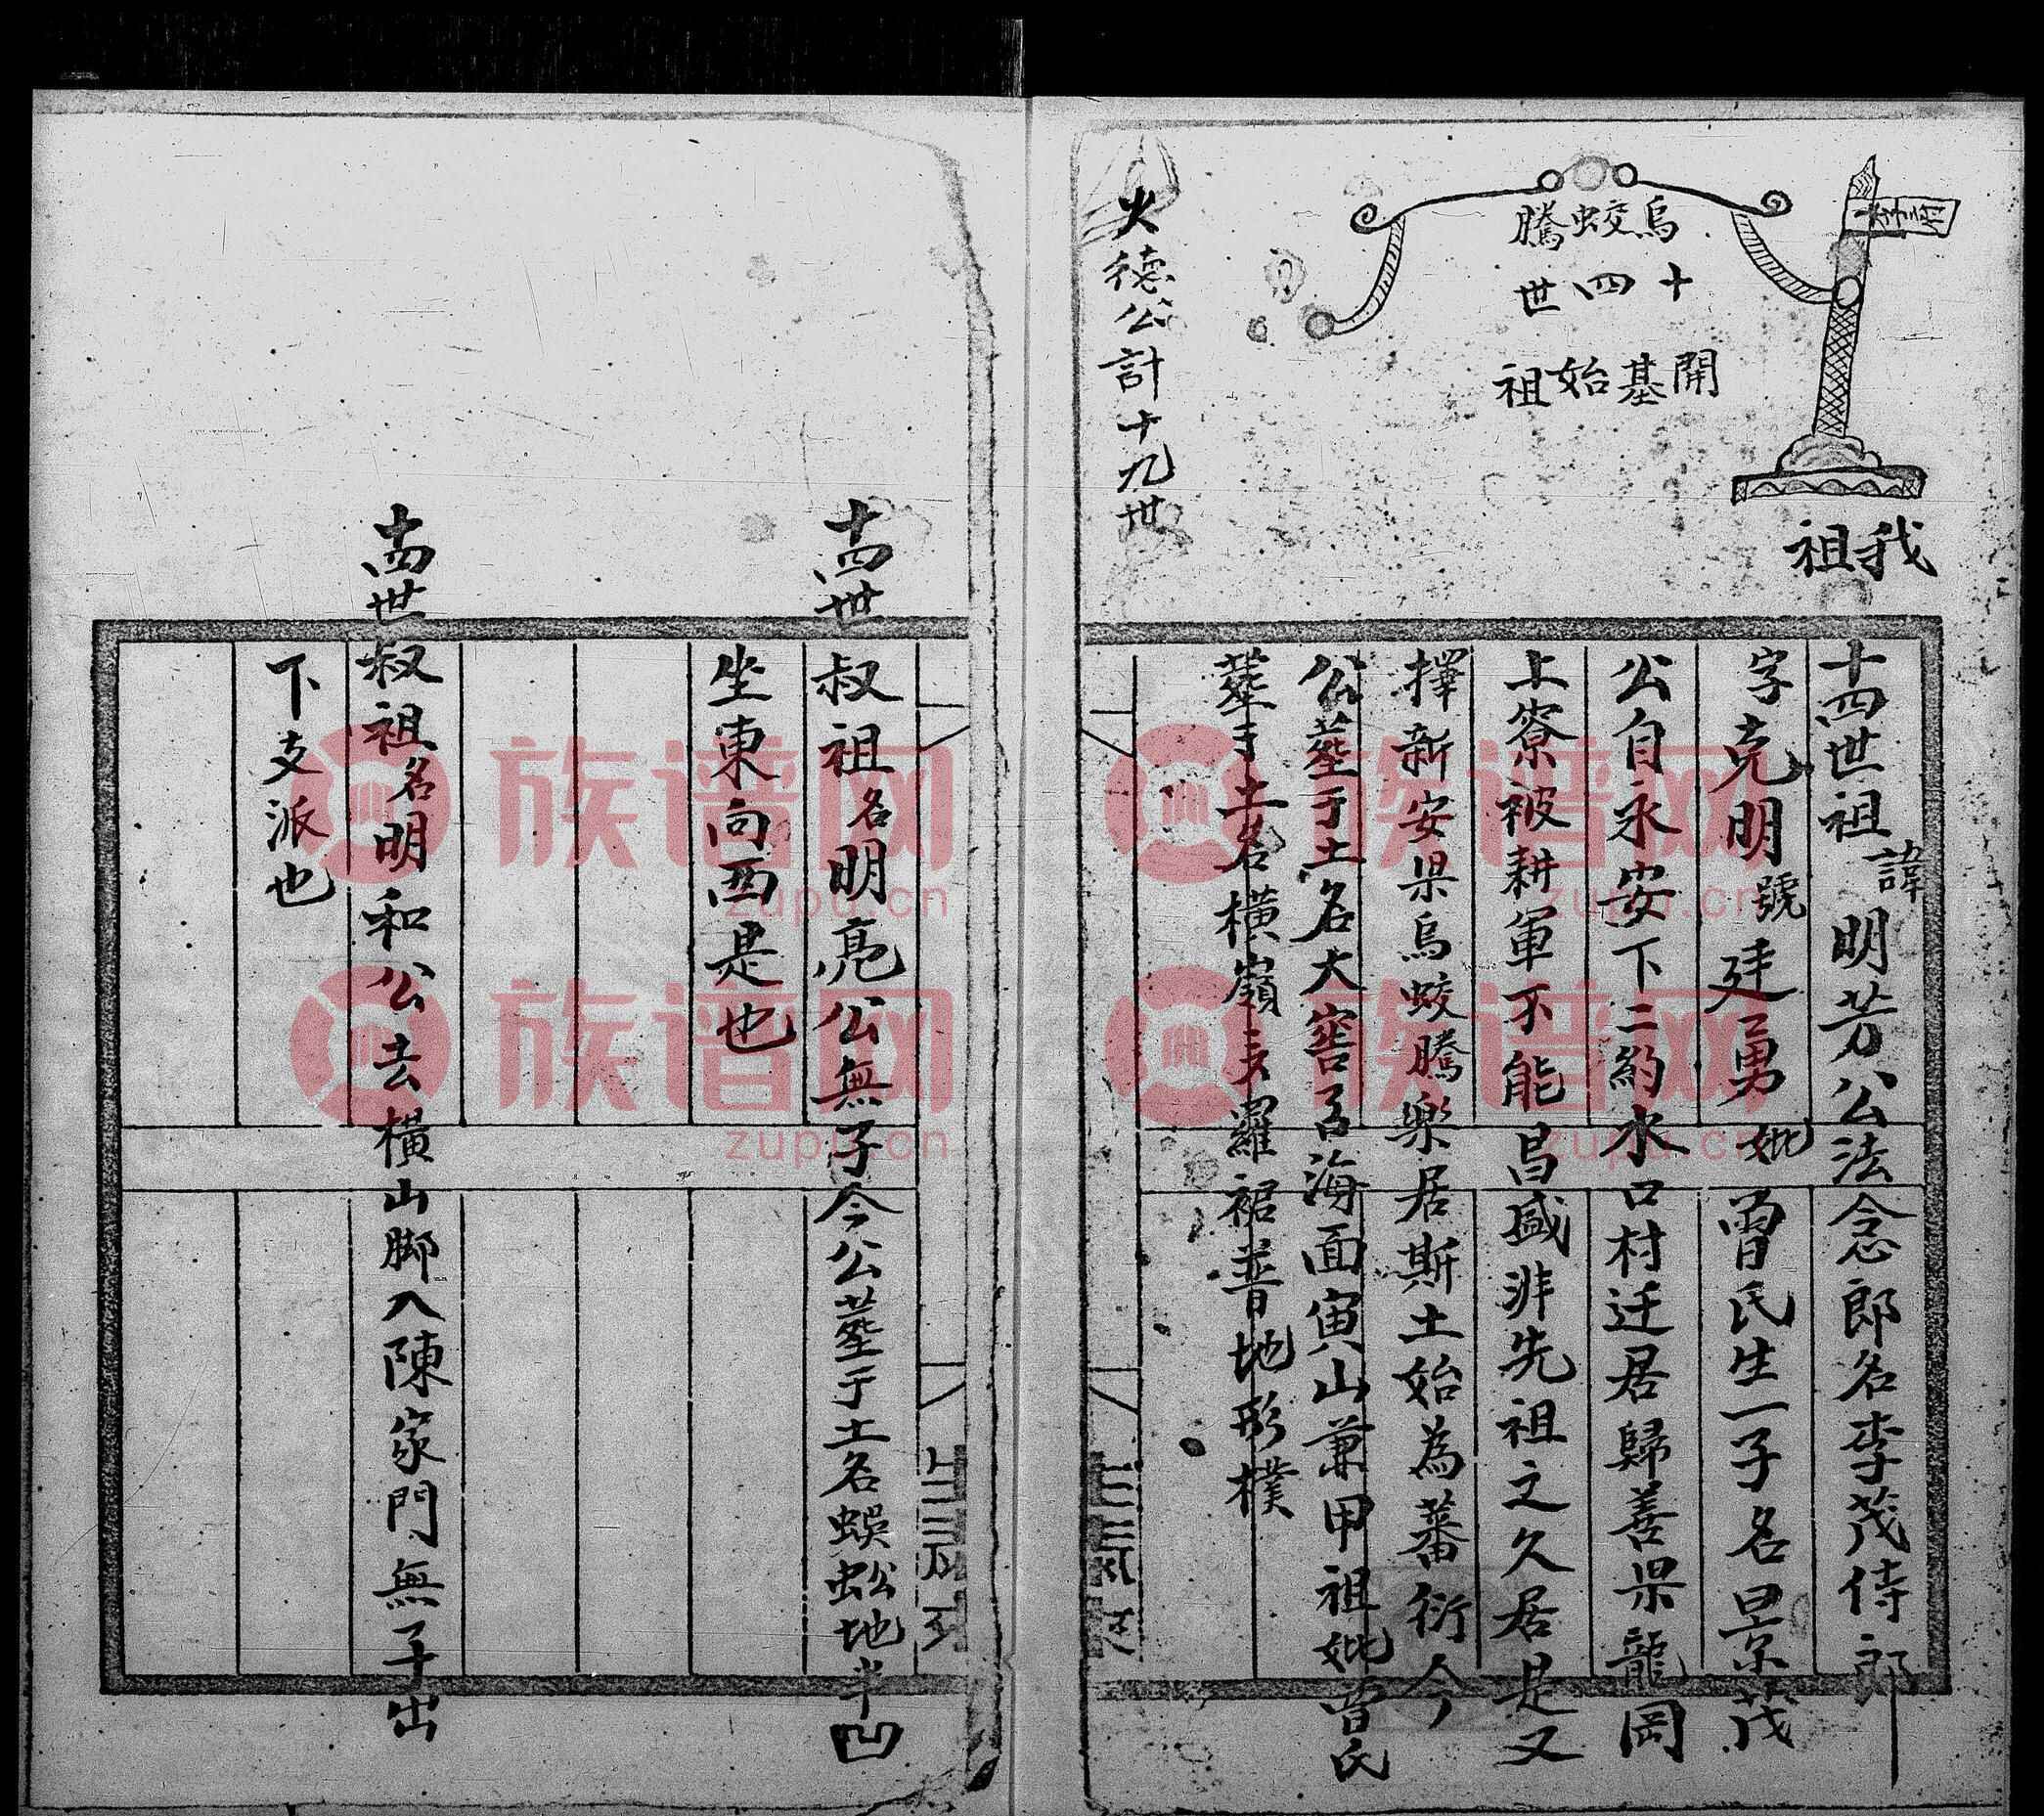 我祖
烏蛟騰
十四世
開基始祖
火德公計十九世
十四世祖諱明芳公法念郎名李茂侍郎
字克明號廷勇妣曾氏生一子名景茂
公自永安下二約水口村迁居歸善県龍岡
上寮被耕軍不能昌盛非先祖之久居是又
擇新安県烏蛟騰樂居斯土始為蕃衍今
公塟于土名大窖舌海面寅山兼甲祖妣曾氏
塟于土名橫嶺羅裙普地形樸
十四世叔祖名明亮公無子今公塟于土名蜈蚣地半凹
坐東向西是也
十四世叔祖名明和公去橫山脚入陳家門無子出
下支派也
族谱网
zupu.cn
族谱网
zupu.cn
族谱网
zupu.cn
族谱网
zupu.cn